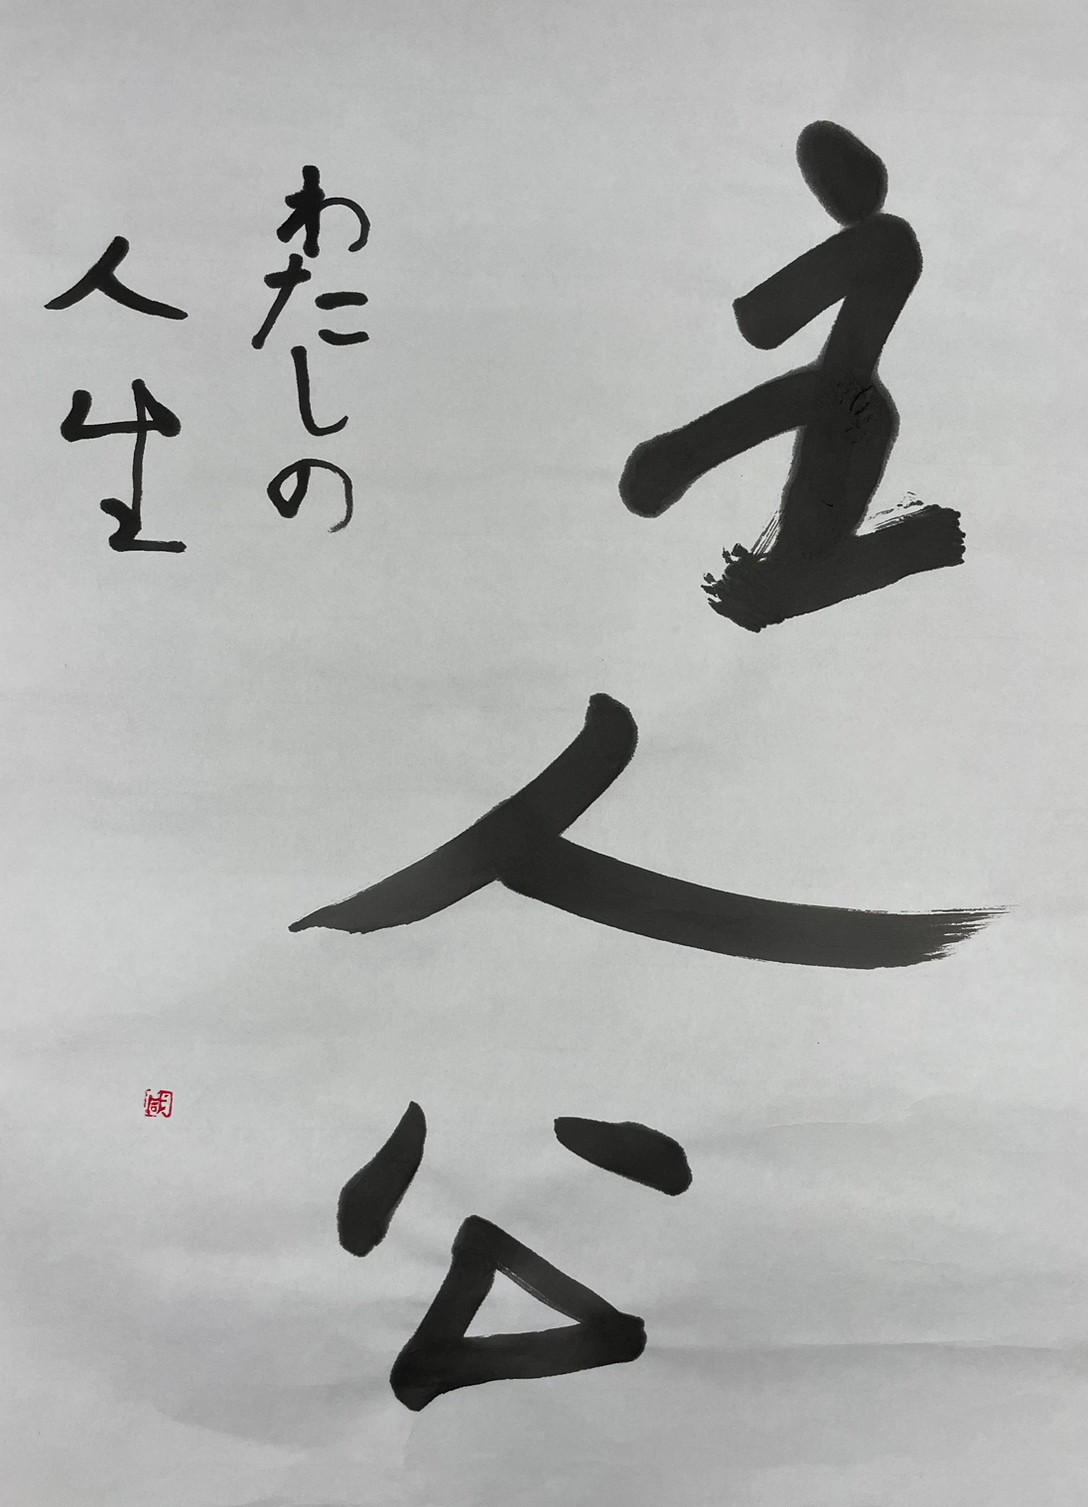 主人公
わたしの
人生